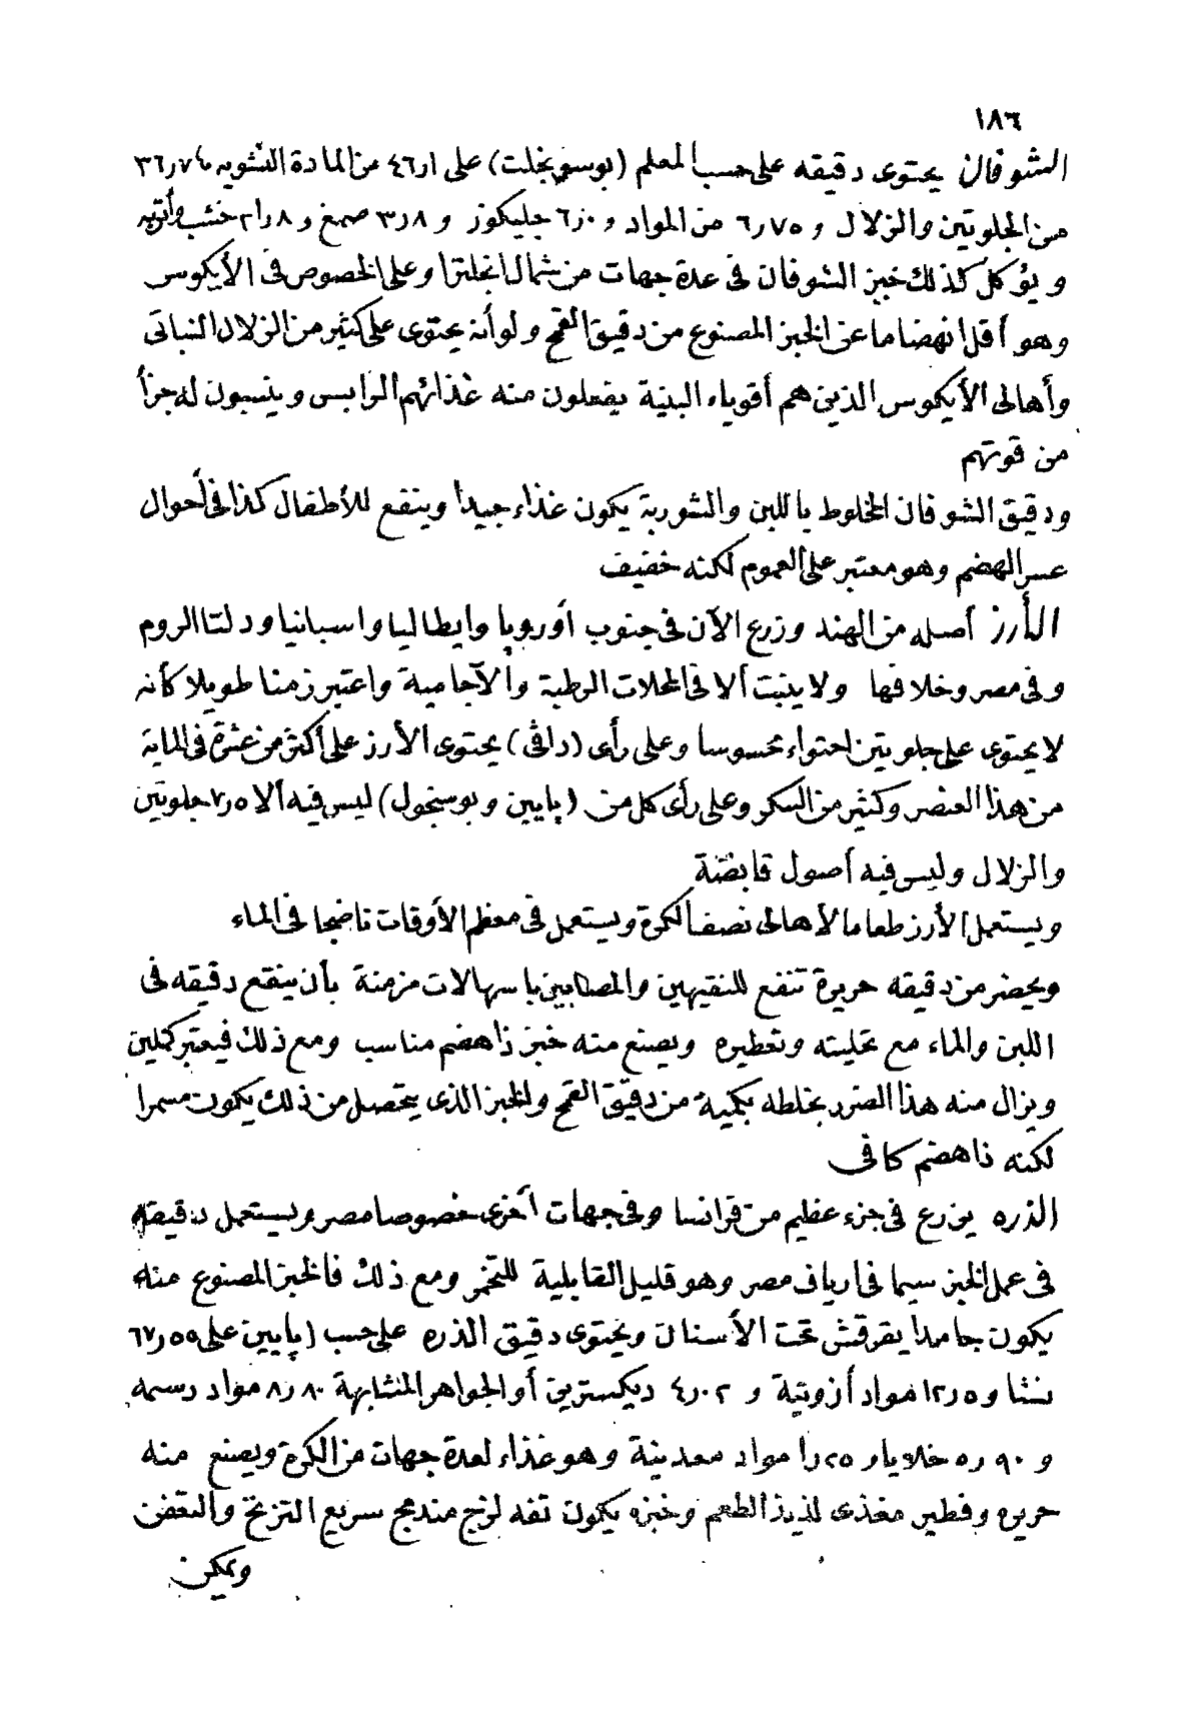 ١٨٦
الشوفان يحتوى دقيقه على حسب المعلم (بوسوبخلت) على ٤٦ر١ من المادة النشويه و٧٤ر٣٦
من الجلوتين والزلال و ٧٥ر٦ من المواد و ٠ر٦ جليكوز و ٨ر٣ صمغ و ٨ر١٨ خشب وأتربه
ويؤكل كذلك خبز الشوفان فى عدة جهات من شمال انجلترا وعلى الخصوص فى الأيكوس
وهو أقل انهضاما عن الخبز المصنوع من دقيق القمح ولو أنه يحتوى على كثير من الزلال النباتى
وأهالى الأيكوس الذين هم أقوياء البنية يفعلون منه غذائهم الرايس وينسبون له جزأ
من قوتهم
ودقيق الشوفان المخلوط باللبن والشوربة يكون غذاء جيدا وينفع للأطفال كذا فى أحوال
عسر الهضم وهو معتبر على العموم لكنه خفيف
الأرز أصله من الهند وزرع الآن فى جنوب أوروپا وايطاليا واسبانيا ودلتا الروم
وفى مصر وخلافها ولا ينبت ألا فى المحلات الرطبة والآجامية واعتبر زمنا طويلا كأنه
لا يحتوى على جلوتين احتواء محسوسا وعلى رأى (داڤى) يحتوى الأرز على أكثر من عشرة فى الماية
من هذا العنصر وكثير من السكر وعلى رأى كل من (پايين وبوسنجول) ليس فيه ألا ٥ر٧ جلوتين
والزلال وليس فيه أصول قابضة
ويستعمل الأرز طعاما لأهالى نصف الكرة ويستعمل فى معظم الأوقات ناضجا فى الماء
ويحضر من دقيقه حريرة تنفع للنقيهين والمصابين باسهالات مزمنة بأن ينقع دقيقه فى
اللبن والماء مع تحليته وتعطيره ويصنع منه خبز ذا هضم مناسب ومع ذلك فيعتبر كملين
ويزال منه هذا الضرر بخلطه بكمية من دقيق القمح والخبز الذى يتحصل من ذلك يكون مسمرا
لكنه ذا هضم كافى
الذره يزرع فى جزء عظيم من فرانسا وفى جهات أخرى خصوصا مصر ويستعمل دقيقه
فى عمل الخبز سيما فى ارياف مصر وهو قليل القابلية للتخمر ومع ذلك فالخبز المصنوع منه
يكون جامدا يقرقش تحت الأسنان ويحتوى دقيق الذره على حسب (پايين على ٥٥ر٦٧
نشا و ٥ر١٢ مواد أزوتية و ٠٢ر٤ ديكسترين أو الجواهر المتشابهة ٨٠ر٨ مواد دسمه
و ٩٠ر٥ خلايا و ٢٥ر١ مواد معدينة وهو غذاء لعدة جهات من الكرة ويصنع منه
حريره وفطير مغذى لذيذ الطعم وخبزه يكون تفه لزج مندمج سريع التزنخ والتعفن
ويمكن